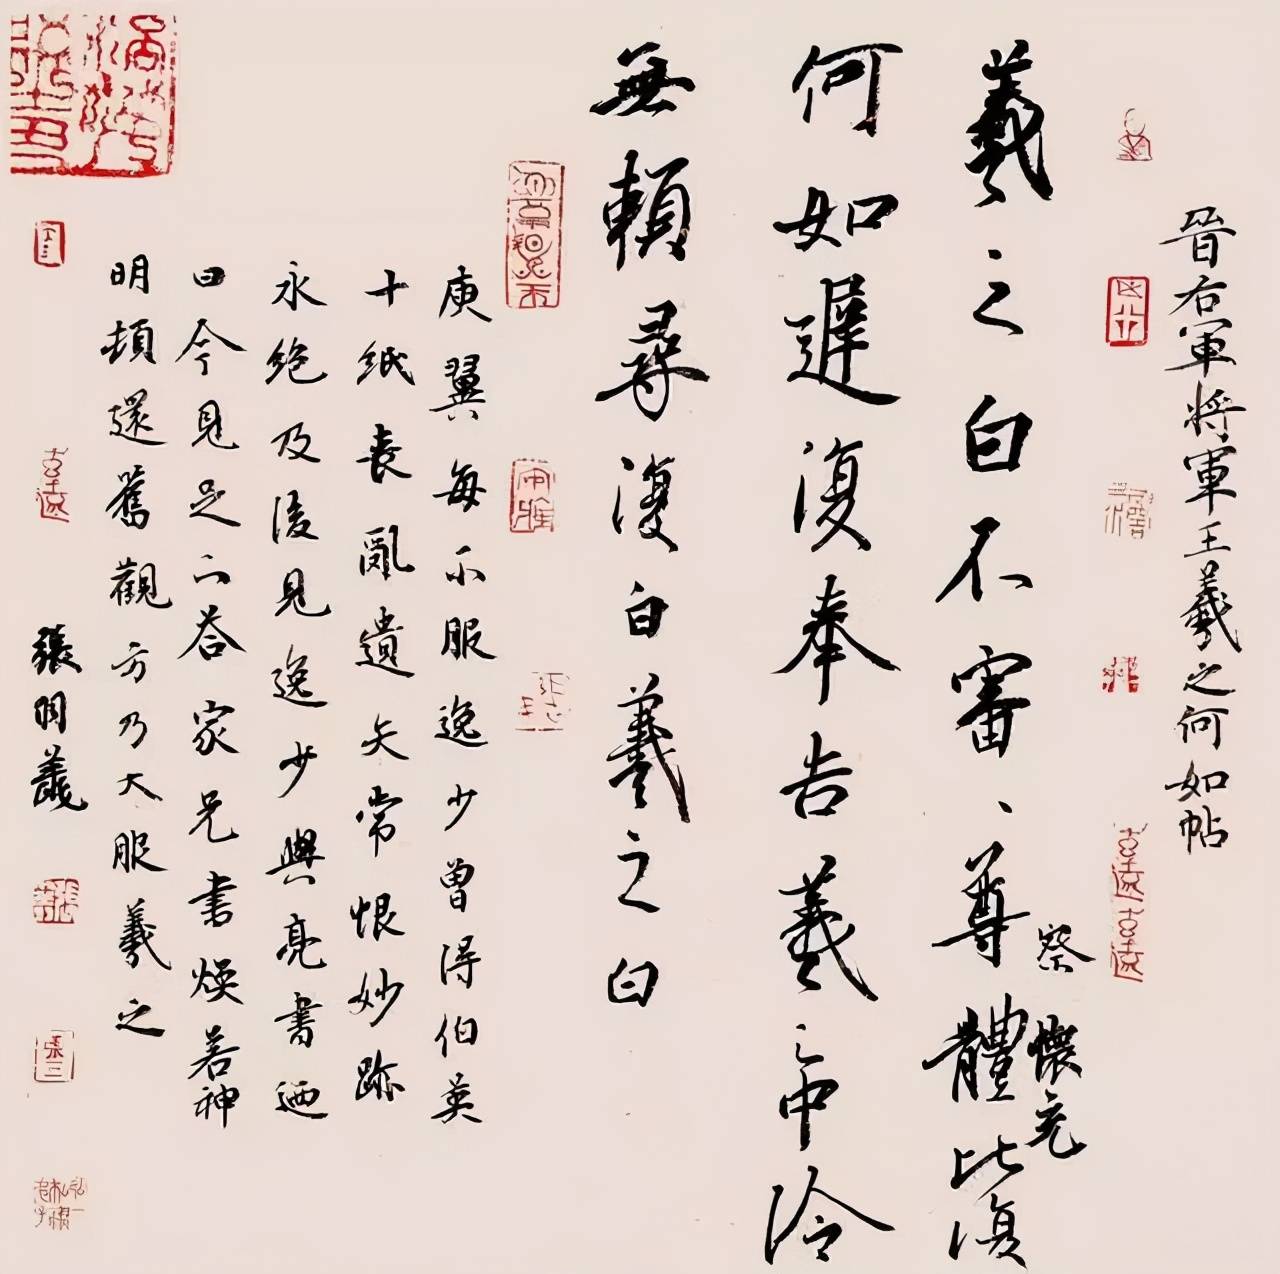 晉右軍將軍王羲之何如帖
察懷充
羲之白不審、尊體比復
何如遲復奉告羲之中冷
無賴尋復白羲之白
庾翼每不服逸少曾得伯英
十紙喪亂遺失常恨妙跡
永絕及後見逸少與亮書廼
曰今見足下荅家兄書煥若神
明頓還舊觀方乃大服羲之
張
張三